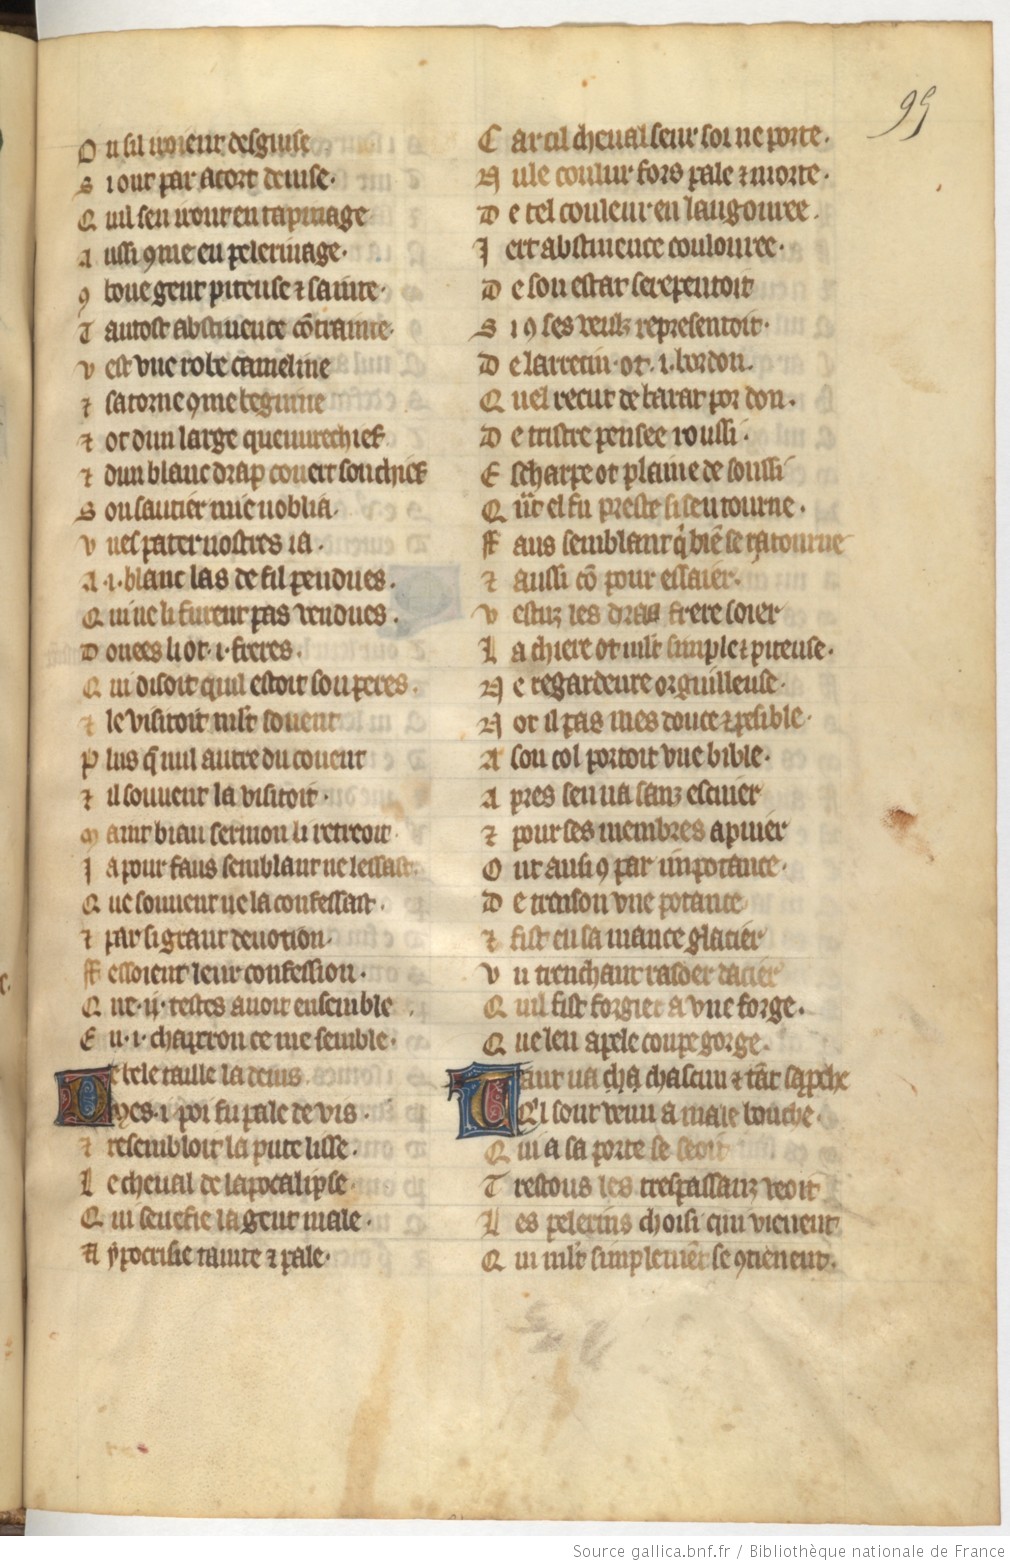 95
O u sil iroient desguise
S i ont par acort deuise.
Q uil sen iront en tapinage
A ussi 9me en pelerinage.
9 bone gent piteuse ⁊ sainte.
T antost abstinence cõtrainte.
V est vne robe cameline
⁊ satorne 9me beguine
⁊ ot dun large queuurechief
⁊ dun blanc drap couert son chief
S on sautier mie noblia.
V nes paternostres i a.
A .i. blanc las de fil pendues.
Q ui ne li furent pas vendues.
D onees li ot .i. freres.
Q ui disoit quil estoit son peres.
⁊ le visitoit mlt souent
P lus q̃ nul autre du couent
⁊ il souuent la visitoit.
M aint biau sermon li retreoit.
J a pour faus semblant ne lessast.
Q ue souuent ne la confessast.
⁊ par si grant deuotion.
ff essoient leur confession.
Q ue .ij. testes auoit ensemble.
E n .i. chapron ce me semble.
D e bele taille la deuis
yes .i. poi fu pale de vis.
⁊ resembloit la pute lisse.
L e cheual de lapocalipse.
Q ui senefie la gent male.
A ypocrisie tainte ⁊ pale.
C ar cil cheual seur soi ne porte.
N ule coulur fors pale ⁊ morte.
D e tel couleur en langouree.
J ert abstinence coulouree.
D e son estat se repentoit
S i 9 ses veulz representoit.
D e larrecin ot .i. bordon.
Q uel recut de barat por don.
D e tristre pensee roussi.
E scharpe ot plaine de soussi
Q ñt el fu preste si sen tourne.
ff aus semblant q̃ biẽ se ratourne
⁊ aussi cõ pour essaier.
V estuz les dras frere soier
L a chiere ot mlt simple ⁊ piteuse.
N e regardeure orguilleuse.
N ot il pas mes douce ⁊ pesible.
A son col portoit vne bible.
A pres sen ua sanz escuier
⁊ pour ses membres apuier
O ut ausi 9 par inpotance.
D e traison vne potance
⁊ fist en sa mance glacier
V n trenchant rasoer dacier
Q uil fist forgier a vne forge.
Q ue len apele coupe gorge.
T ant ua chũ chascun ⁊ tãt sap̃che
Q l sont venu a male bouche.
Q ui a sa porte se seoit
T restous les trespassanz veoit
L es pelerins choisi qui vienent
Q ui mlt simplemẽt se 9tienent.
Source gallica.bnf.fr / Bibliothèque nationale de France